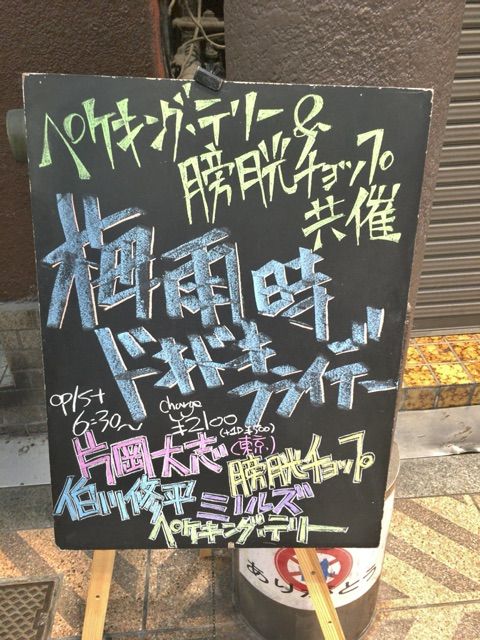 ペケキング、テリー&
膀胱チョップ
共催
梅雨時
ドキドキ
フライデー
OP/St
6:30〜
charge
¥2100
(+1D ¥500)
片岡大志(東京)
膀胱チョップ
伯川修平 ミルルズ
ペケキング、テリー
ありがとう